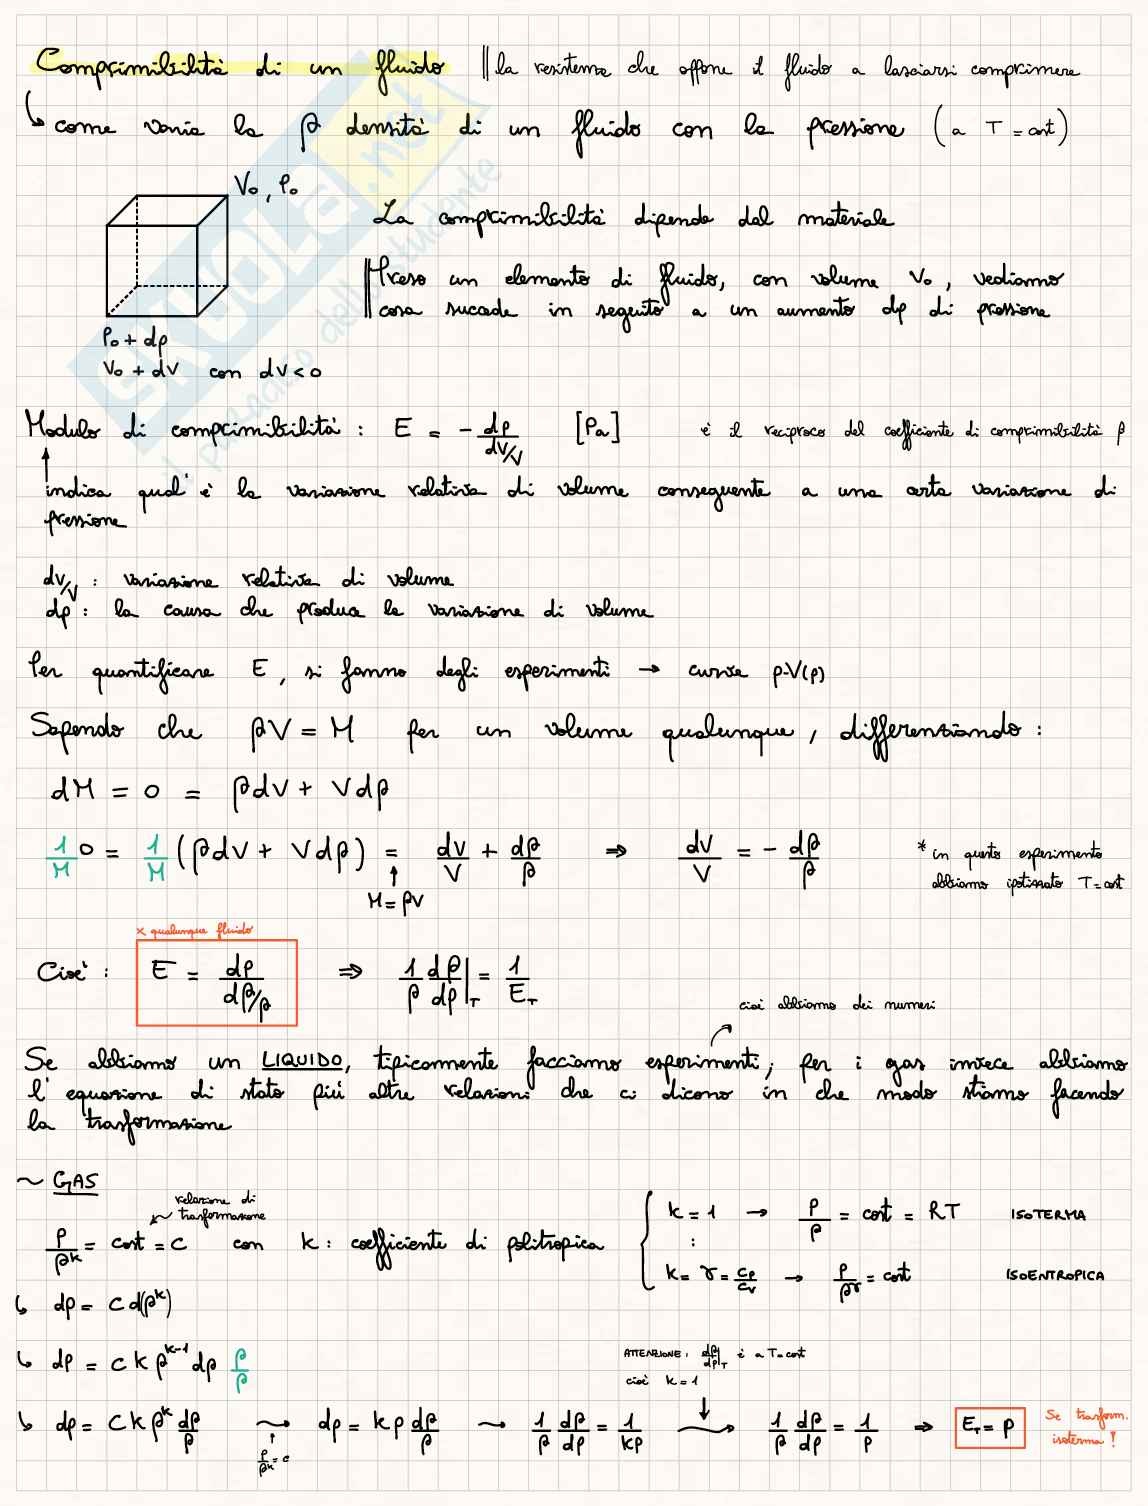 Comprimibilità di un fluido || la resistenza che oppone il fluido a lasciarsi comprimere
↳ come varia la ρ densità di un fluido con la pressione (a T = cost)
V₀, P₀
La comprimibilità dipende dal materiale
Preso un elemento di fluido, con volume V₀, vediamo
cosa succede in seguito a un aumento dp di pressione
P₀ + dp
V₀ + dV con dV < 0
Modulo di comprimibilità: E = - dp / (dV/V) [Pa] è il reciproco del coefficiente di comprimibilità β
indica qual'è la variazione relativa di volume conseguente a una certa variazione di
pressione
dV/V : variazione relativa di volume
dp : la causa che produce la variazione di volume
Per quantificare E, si fanno degli esperimenti → curva p-V(p)
Sapendo che ρV = M per un volume qualunque, differenziando:
dM = 0 = ρdV + Vdρ
1/M 0 = 1/M (ρdV + Vdρ) = dV/V + dρ/ρ ⇒ dV/V = - dρ/ρ
* in questo esperimento
abbiamo ipotizzato T = cost
↑ M = ρV
x qualunque fluido
Cioè: E = dp / (dρ/ρ) ⇒ 1/ρ dρ/dp|T = 1/E_T
cioè abbiamo dei numeri
Se abbiamo un LIQUIDO, tipicamente facciamo esperimenti; per i gas invece abbiamo
l'equazione di stato più altre relazioni che ci dicono in che modo stiamo facendo
la trasformazione
~ GAS
relazione di
trasformazione
P/ρ^k = cost = C con k: coefficiente di politropica
k = 1 → P/ρ = cost = RT ISOTERMA
:
k = γ = cp/cv → P/ρ^γ = cost ISOENTROPICA
↳ dp = C d(ρ^k)
↳ dp = C k ρ^(k-1) dρ ρ/ρ
ATTENZIONE: dρ/dp|T è a T = cost
cioè k = 1
↳ dp = C k ρ^k dρ/ρ ⟿ dp = k p dρ/ρ ⟿ 1/ρ dρ/dp = 1/kp ⟿ 1/ρ dρ/dp = 1/p ⇒ E_T = P
Se trasform.
isoterma!
↑ P/ρ^k = c
SKUOLA.net
il paradiso dello studente